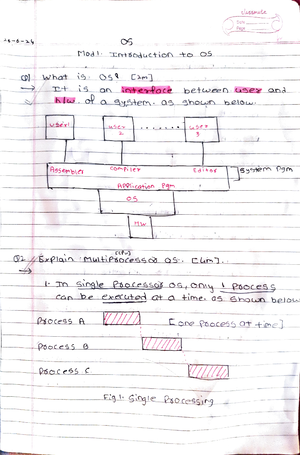 classmate
Date
Page
OS
Mod 1. Introduction to OS
Q1 What is OS? [2m]
→ It is an interface between user and
h/w of a system. as shown below.
user 1 user 2 ........ user 3
Assembler compiler Editor System Pgm
Application Pgm
OS
H/w
(CPU)
Q2 Explain Multiprocessor OS. [4m].
→
1. In single Processor OS, only 1 process
can be executed at a time. as shown below
Process A [one process at t=c]
Process B
Process C
Fig 1. Single Processing